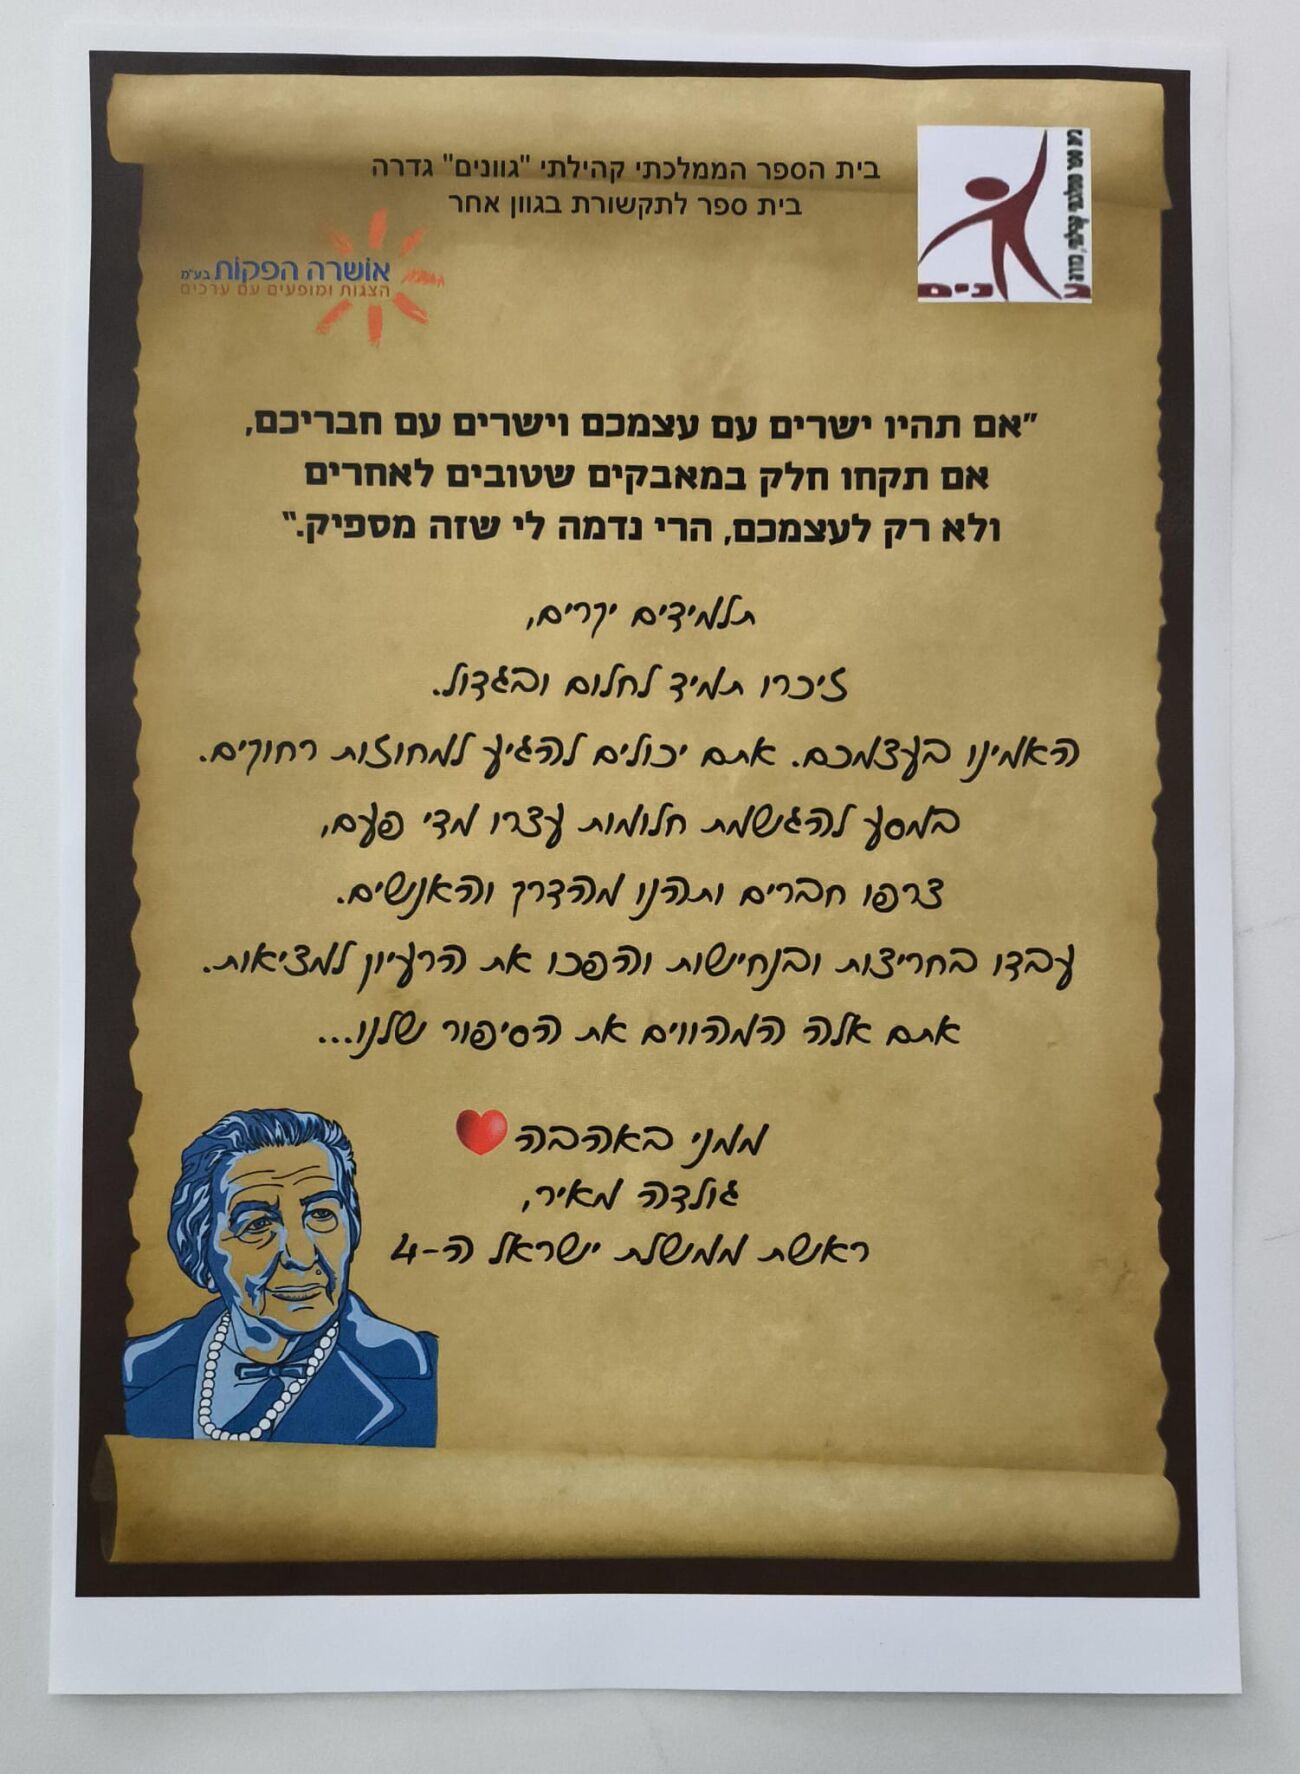 בית הספר הממלכתי קהילתי "גוונים" גדרה
בית ספר לתקשורת בגוון אחר
אושרה הפקות בע"מ
הצגות ומופעים עם ערכים
"אם תהיו ישרים עם עצמכם וישרים עם חבריכם,
אם תקחו חלק במאבקים שטובים לאחרים
ולא רק לעצמכם, הרי נדמה לי שזה מספיק."
תלמידים יקרים,
זיכרו תמיד לחלום ובגדול.
האמינו בעצמכם. אתם יכולים להגיע למחוזות רחוקים.
במסע להגשמת חלומות עצרו מדי פעם,
צרפו חברים ותהנו מהדרך והאנשים.
עבדו בחריצות ובנחישות והפכו את הרעיון למציאות.
אתם אלה המהווים את הסיפור שלנו...
ממני באהבה
גולדה מאיר,
ראשת ממשלת ישראל ה-4